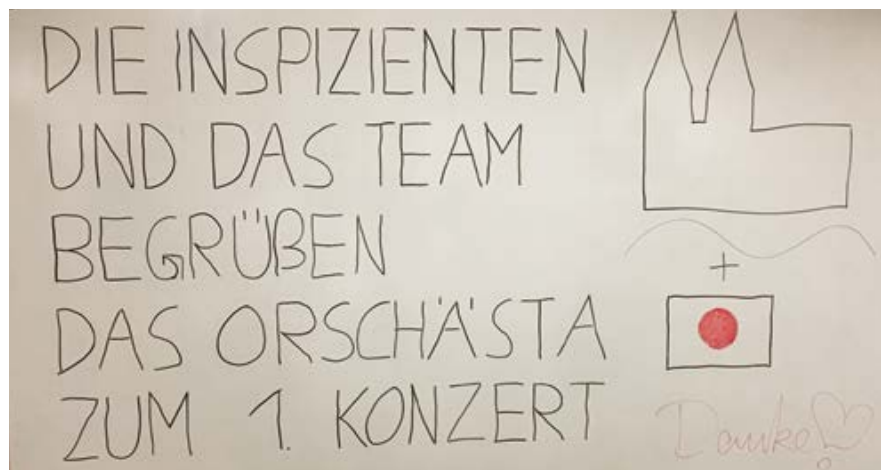 DIE INSPIZIENTEN
UND DAS TEAM
BEGRÜßEN
DAS ORSCHÄSTA
ZUM 1. KONZERT
+
Danke